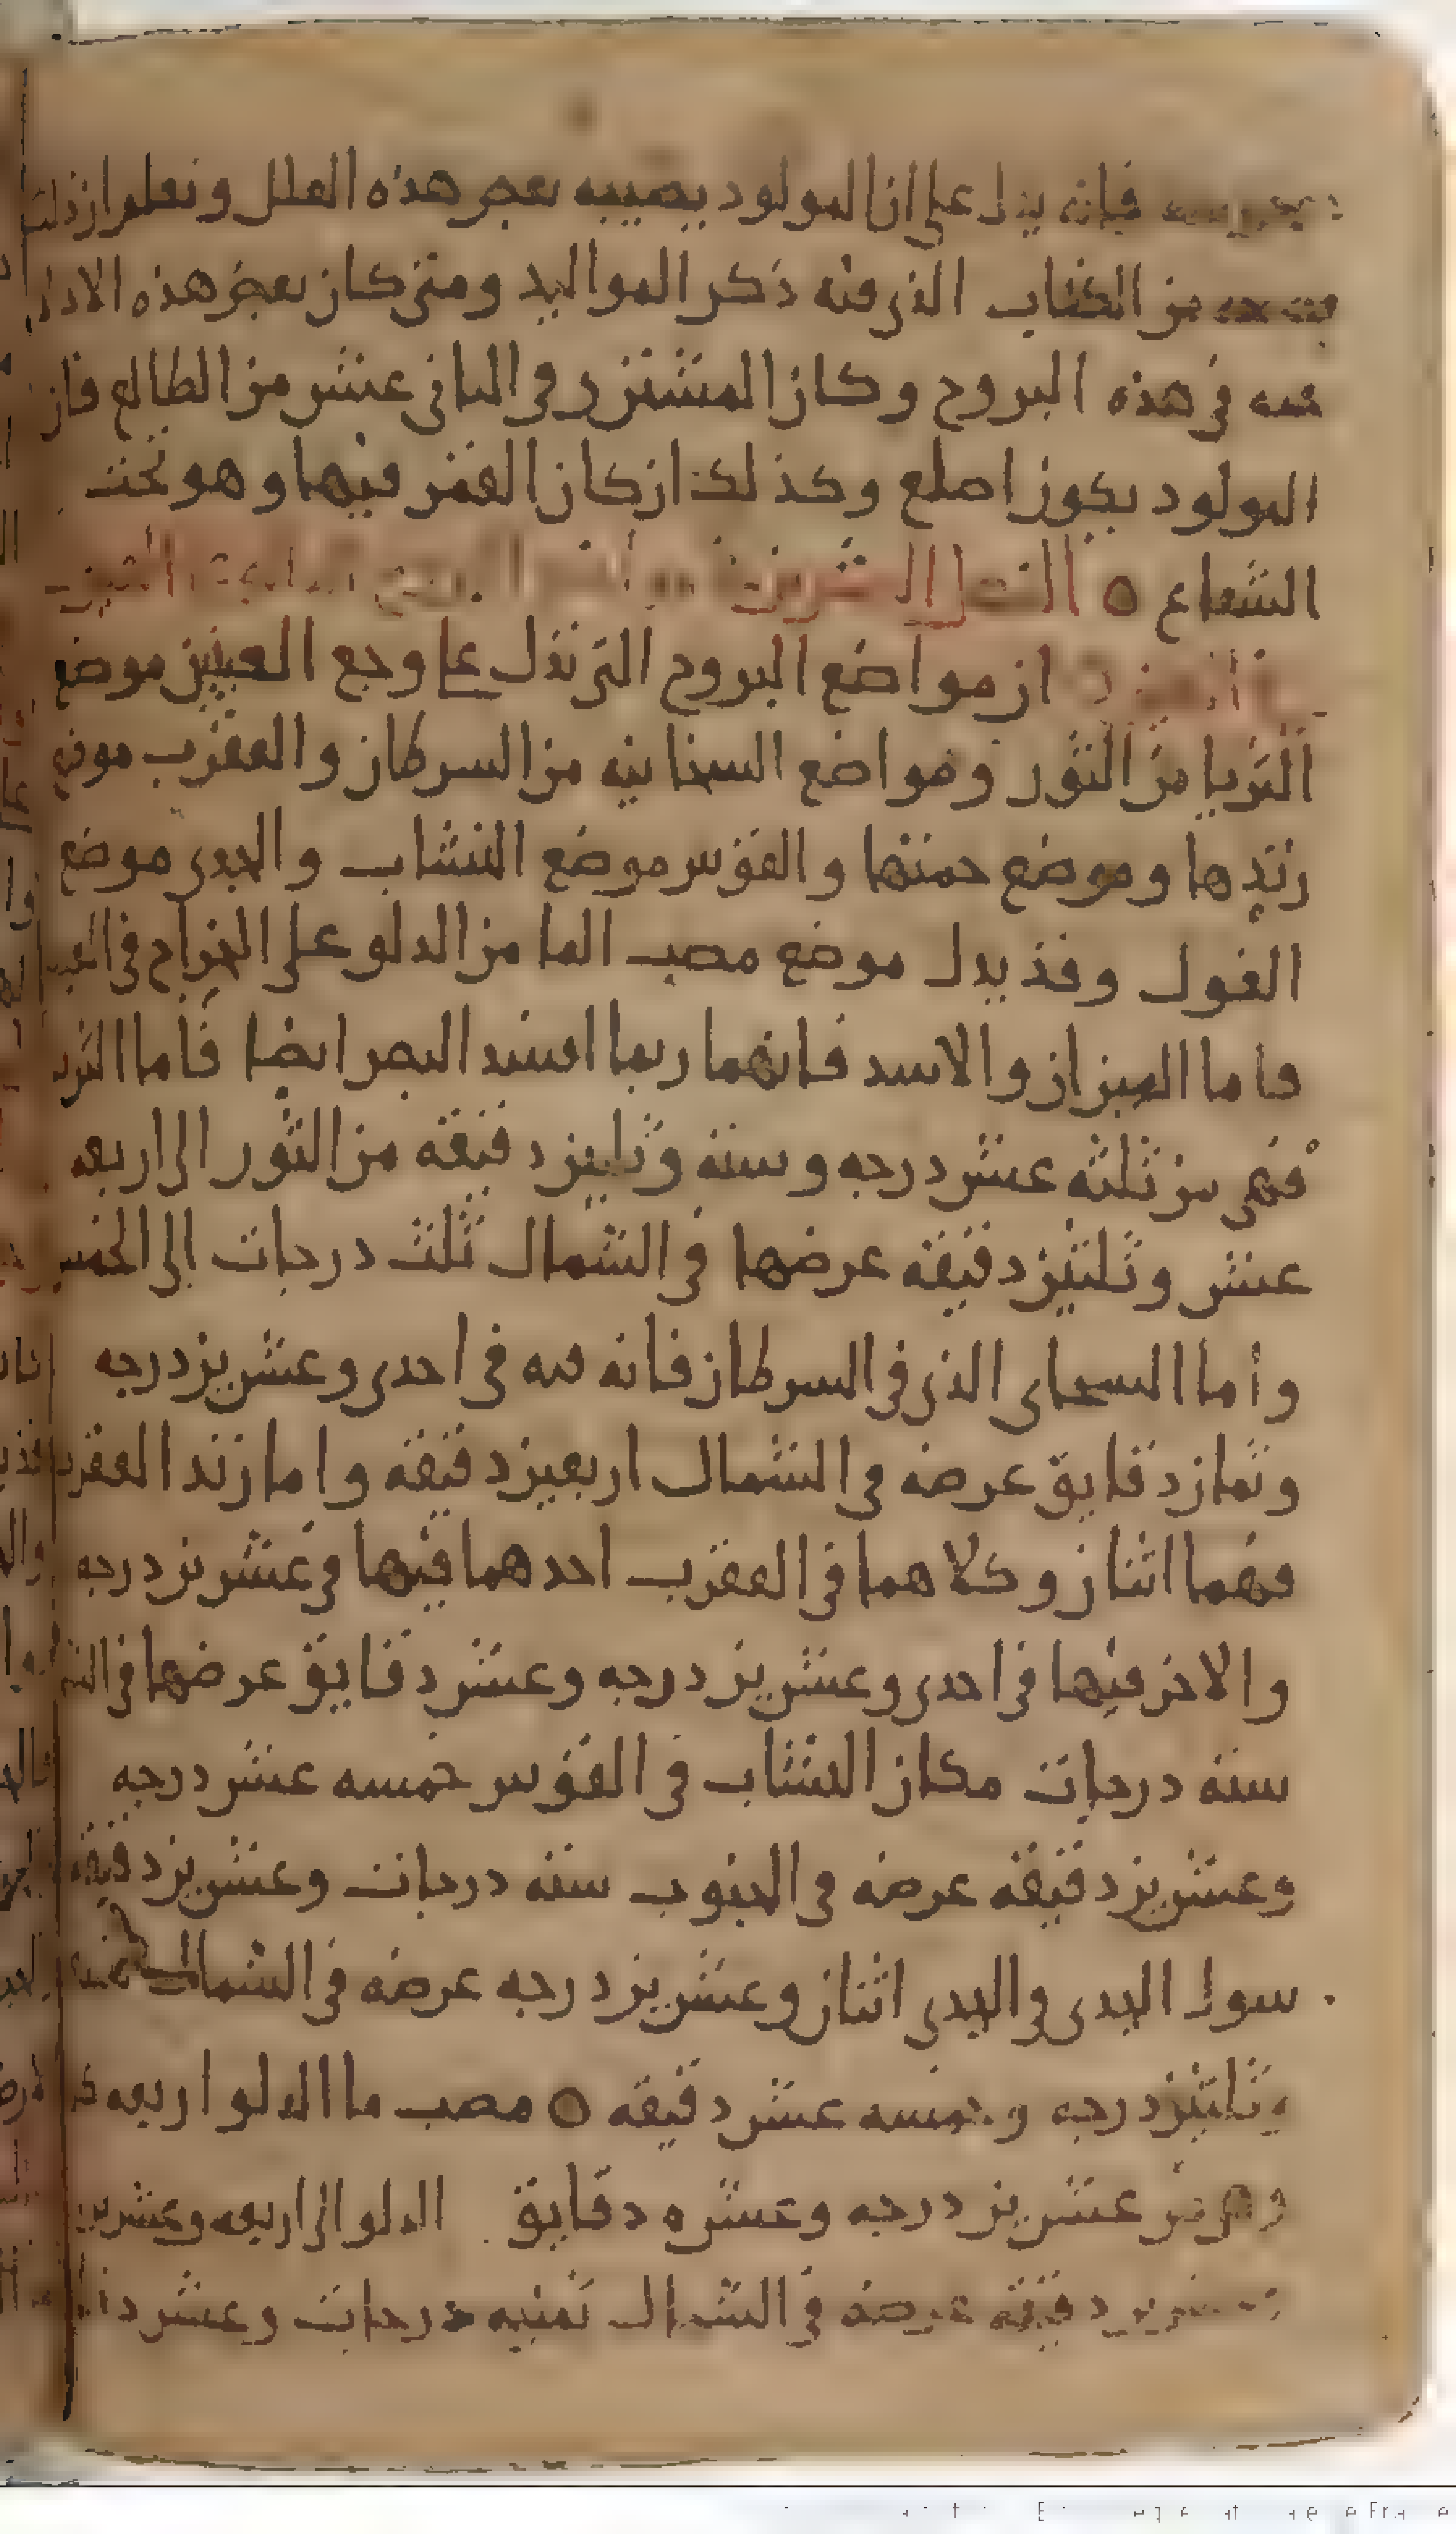 فانه يدل على ان المولود يصيبه بعض هذه العلل ونعلم ان ذلك
من الكتاب الذي فيه ذكر المواليد ومتى كان بعض هذه الادلة
فيه في هذه البروج وكان المشتري في الثاني عشر من الطالع فان
المولود يكون اصلع وكذلك ان كان القمر فيها وهو تحت
الشعاع ٥
ان مواضع البروج التي تدل على وجع العينين موضع
الثريا من الثور ومواضع السحابيه من السرطان والعقرب موضع
زندها وموضع حمتها والقوس موضع النشاب والجدي موضع
الغول وقد يدل موضع مصب الما من الدلو على الخراج في
فاما الميزان والاسد فانهما ربما افسد البصر ايضا فاما
فهي من ثلثه عشر درجه وسته وثلثين دقيقه من الثور الى اربعه
عشر وثلثين دقيقه عرضها في الشمال ثلث درجات الى
وأما السحابي الذي في السرطان فانه فيه في احدى وعشرين درجه
وثمان دقايق عرضه في الشمال اربعين دقيقه واما زند العقرب
فهما اثنان وكلاهما في العقرب احدهما فيها في عشرين درجه
والاخر فيها في احدى وعشرين درجه وعشر دقايق عرضها في
سته درجات مكان النشاب في القوس خمسه عشر درجه
وعشرين دقيقه عرضه في الجنوب سته درجات وعشرين دقيقه
الجدي في الجدي اثنان وعشرين درجه عرضه في الشمال
وثلثين درجه وخمسه عشر دقيقه ٥ مصب ما الدلو اربعه
وهي من عشرين درجه وعشره دقايق الدلو الى اربعه وعشرين
دقيقه عرضه في الشمال ثمنيه درجات وعشر